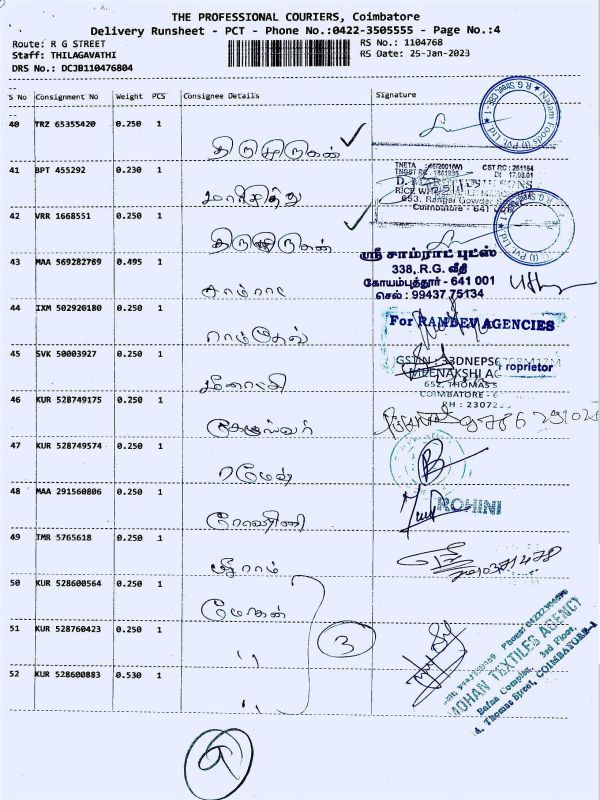 THE PROFESSIONAL COURIERS, Coimbatore
Delivery Runsheet - PCT - Phone No.:0422-3505555 - Page No.:4
Route: R G STREET
RS No.: 1104768
Staff: THILAGAVATHI
RS Date: 25-Jan-2023
DRS No.: DCJB110476804
S No Consignment No Weight PCS Consignee Details Signature
40 TRZ 65355420 0.250 1
திருமுருகன்
41 BPT 455292 0.230 1
மாரிமுத்து
42 VRR 1668551 0.250 1
திருமுருகன்
43 MAA 569282769 0.495 1
சாம்ராட்
ஸ்ரீ சாம்ராட் புட்ஸ்
338, R.G. வீதி
கோயம்புத்தூர் - 641 001
செல் : 99437 75134
44 IXM 502920180 0.250 1
ராம்தேவ்
For RAMDEV AGENCIES
Proprietor
45 SVK 50003927 0.250 1
மீனாட்சி
MEENAKSHI AG
652, THOMAS S
COIMBATORE - 6
PH : 2307
46 KUR 528749175 0.250 1
47 KUR 528749574 0.250 1
ரமேஷ்
48 MAA 291560806 0.250 1
ரோஹிணி
ROHINI
49 TMR 5765618 0.250 1
ஸ்ரீராம்
50 KUR 528600564 0.250 1
மோகன்
51 KUR 528760423 0.250 1
"
3
52 KUR 528600883 0.530 1
"
MOHAN TEXTILES AGENCY
Bafna Complex, 3rd Floor,
Thomas Street, COIMBATORE-1